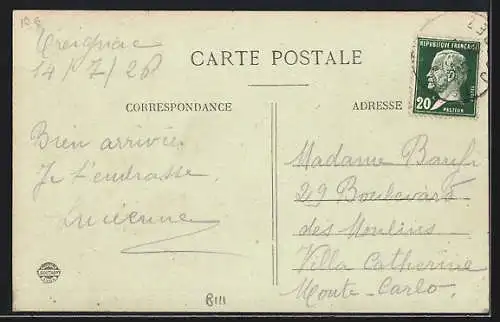 10.G
Treignac
14/7/26
CARTE POSTALE
CORRESPONDANCE
ADRESSE
REPUBLIQUE FRANÇAISE
20
PASTEUR
Bien arrivée.
Je t'embrasse.
Lucienne
Madame
29 Boulevard
des Moulins
Villa Catherine
Monte-Carlo.